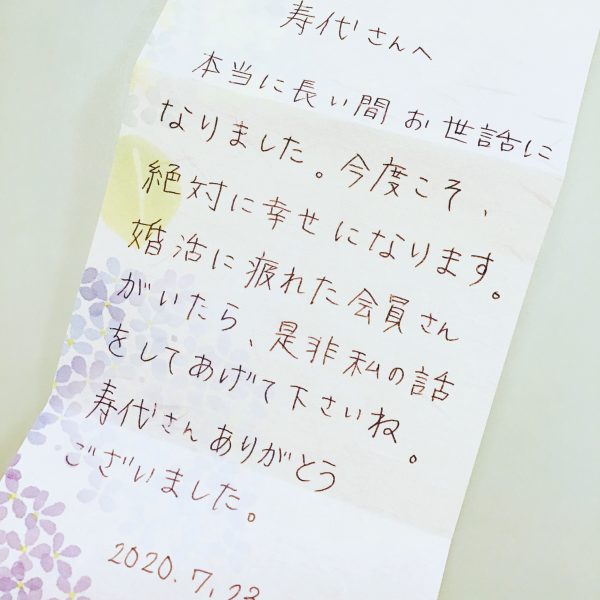 寿代さんへ
本当に長い間お世話に
なりました。今度こそ、
絶対に幸せになります。
婚活に疲れた会員さん
がいたら、是非私の話
をしてあげて下さいね。
寿代さんありがとう
ございました。
2020.7.23